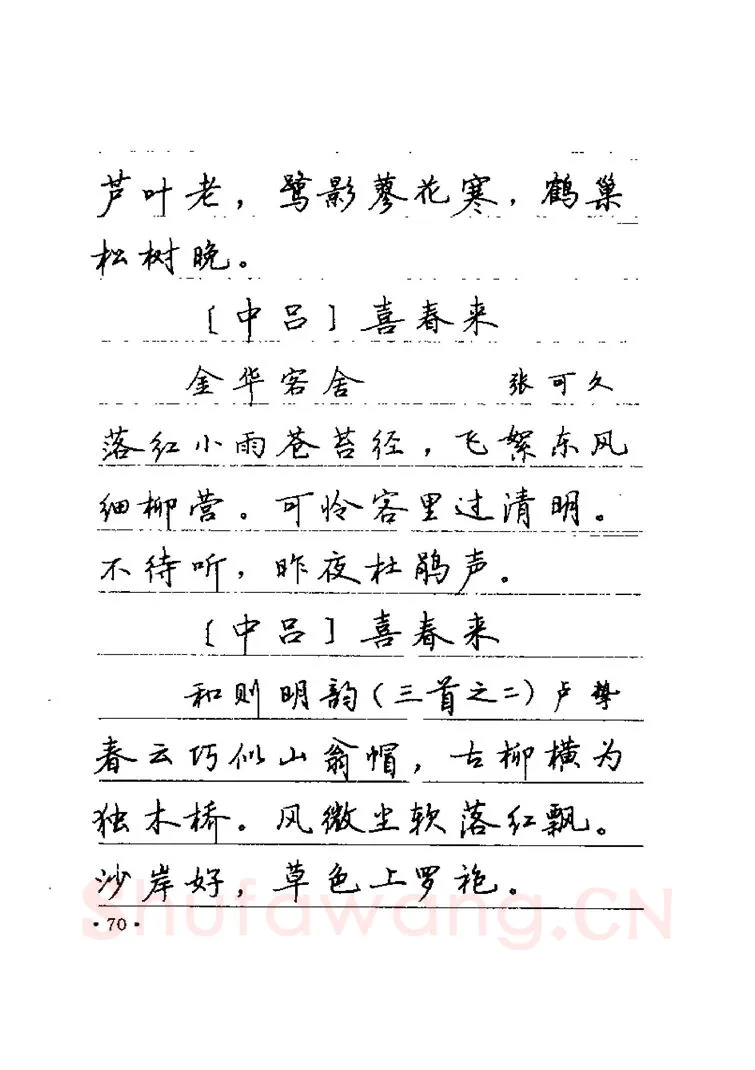 芦叶老，鹭影蓼花寒，鹤巢
松树晚。
［中吕］喜春来
金华客舍 张可久
落红小雨苍苔径，飞絮东风
细柳营。可怜客里过清明。
不待听，昨夜杜鹃声。
［中吕］喜春来
和则明韵（三首之二）卢挚
春云巧似山翁帽，古柳横为
独木桥。风微尘软落红飘。
沙岸好，草色上罗袍。
Shufawang.CN
·70·